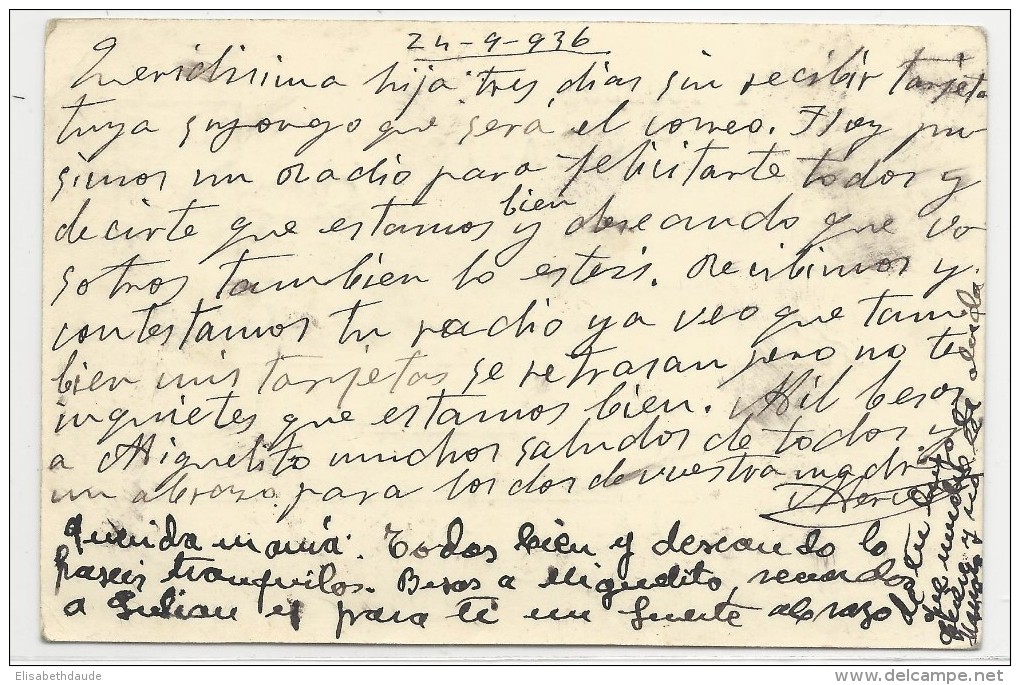 24-9-936
Queridisima hija tres dias sin recibir tarjeta
tuya supongo que será el correo. Hoy pu
simos un radio para felicitarte todos y
decirte que estamos bien y deseando que vo
sotros tambien lo esteis. Recibimos y
contestamos tu radio ya veo que tam
bien mis tarjetas se retrasan pero no te
inquietes que estamos bien. Mil besos
a Miguelito muchos saludos de todos y
un abrazo para los dos de vuestra madre
Querida mamá. Todos bien y deseando lo
paseis tranquilos. Besos a Miguelito, recuerdos
a Julian y para ti un fuerte abrazo
de tu hijo
que mucho
no te olvida
Elisabethdaude
delcampe.net